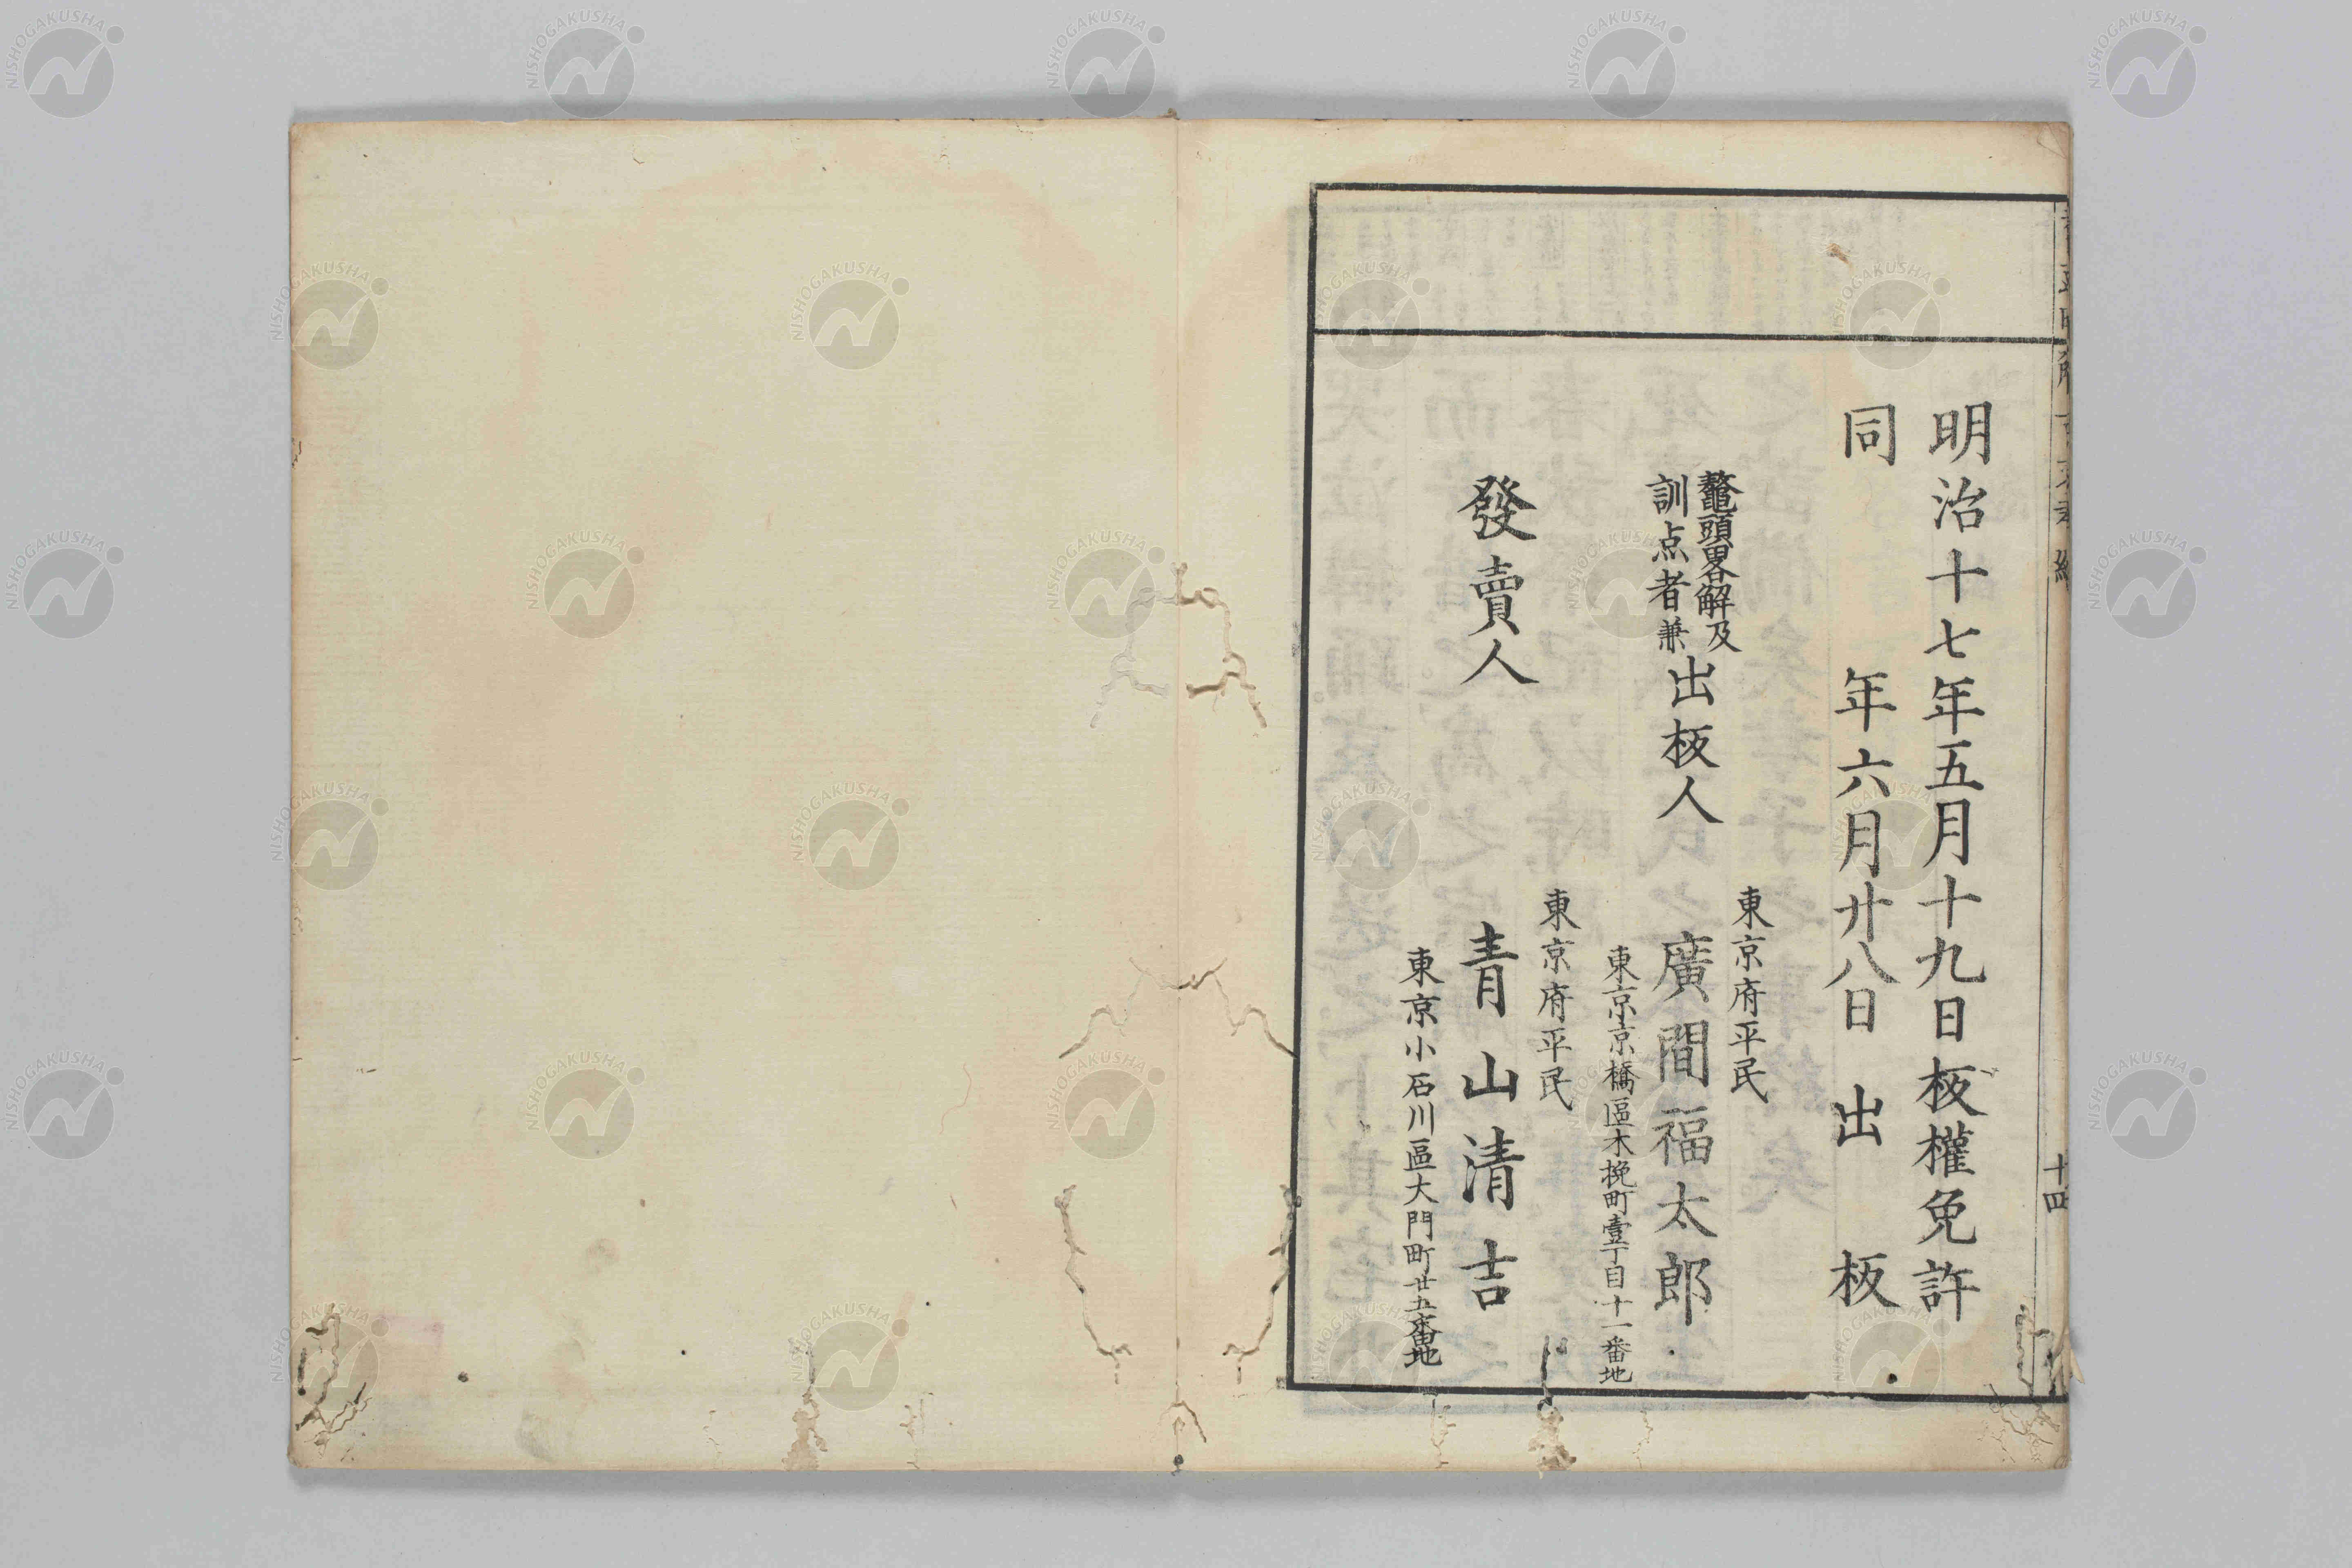 明治十七年五月十九日板權免許
同 年六月廿八日 出 板
鼇頭畧解及
訓点者兼
出板人
東京府平民
廣間福太郎
東京京橋區木挽町壹丁目十一番地
發賣人
東京府平民
青山清吉
東京小石川區大門町廿五番地
十四
NISHOGAKUSHA